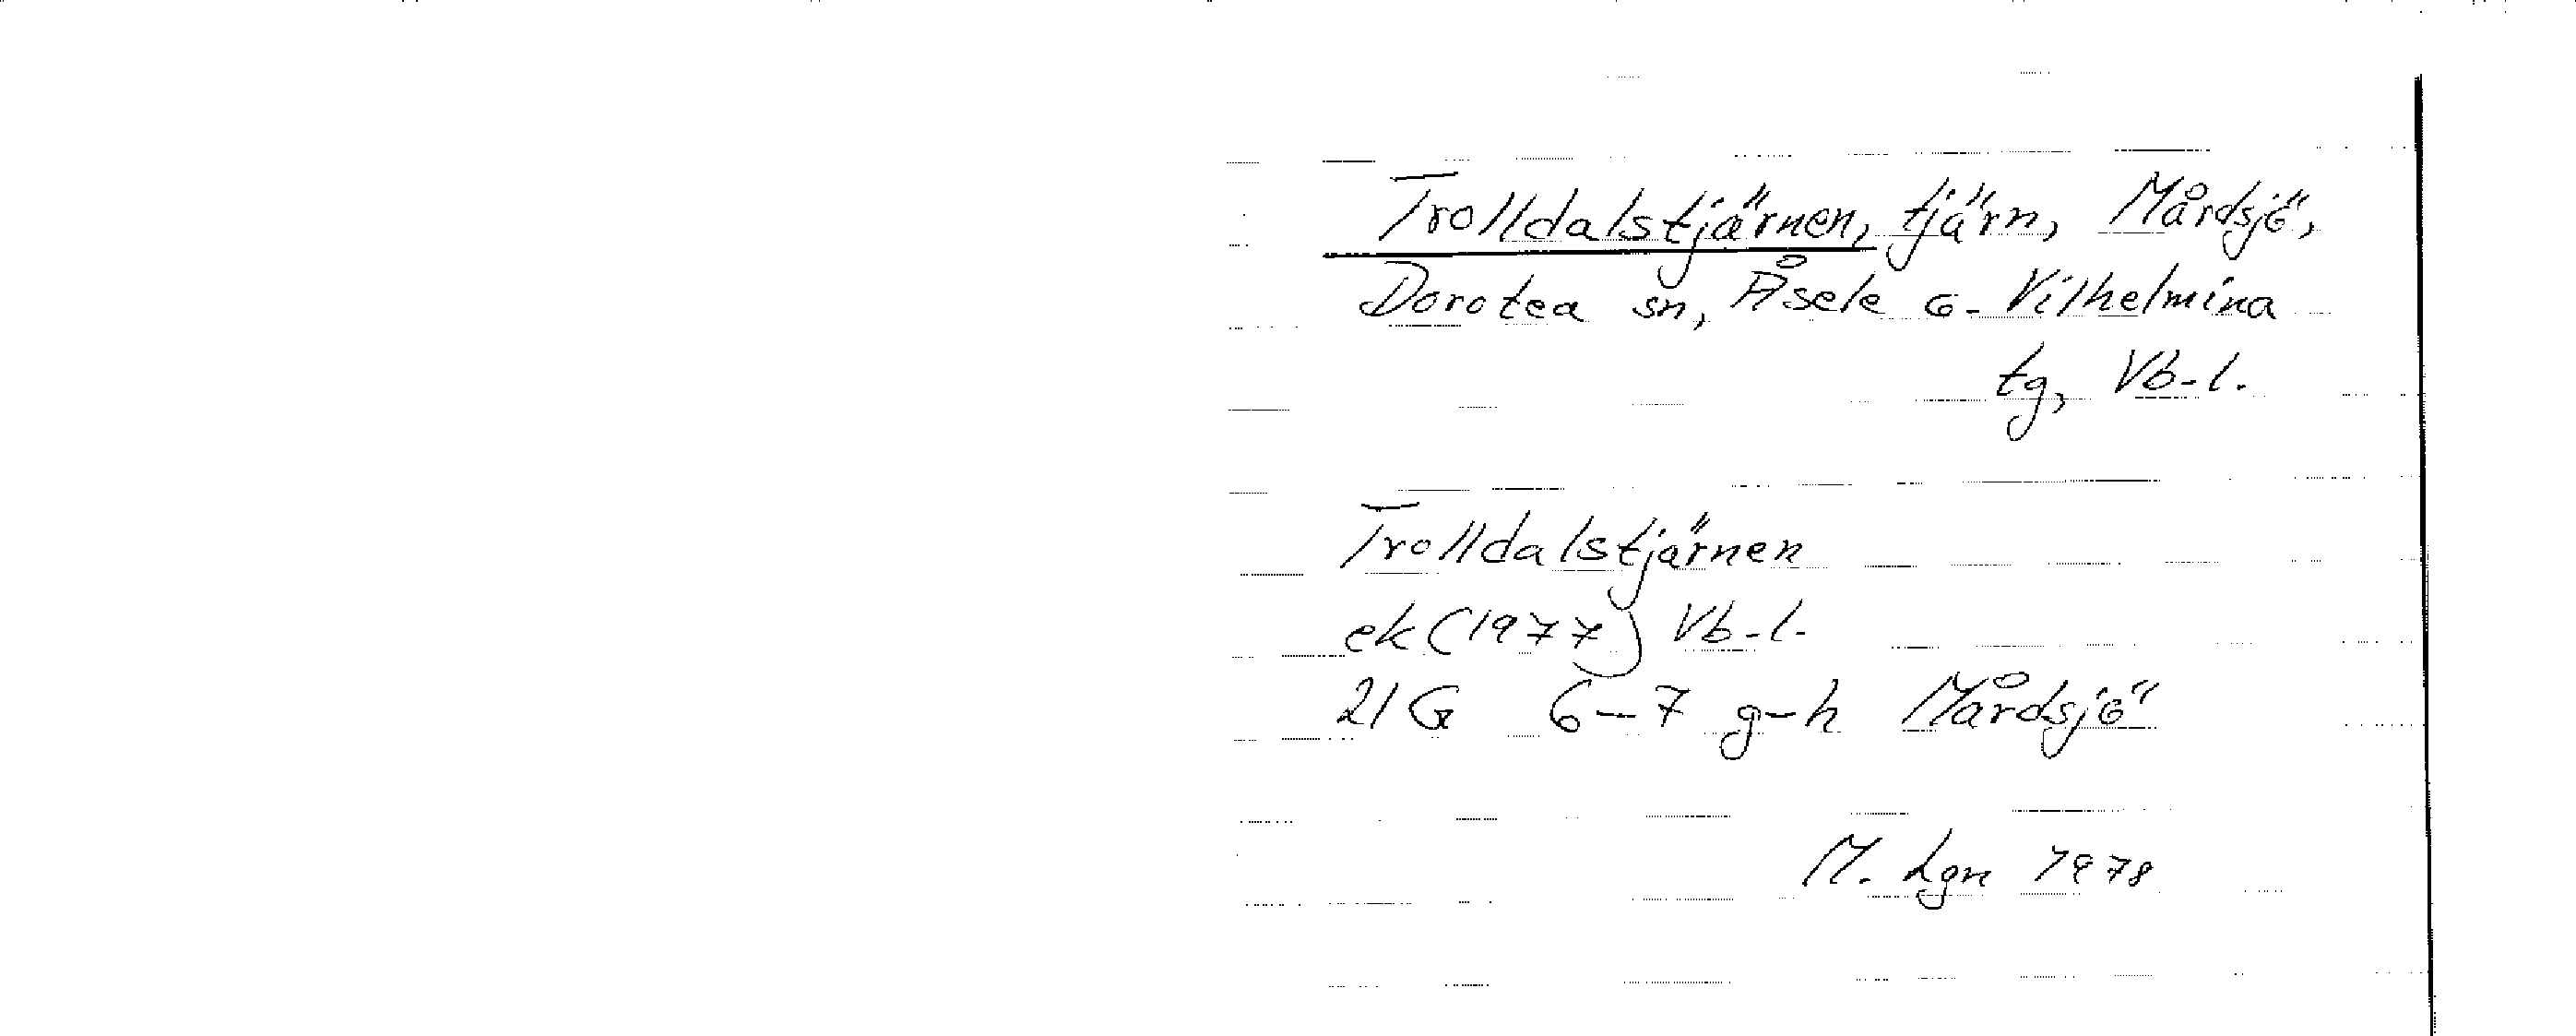 Trolldalstjärnen, tjärn, Mårdsjö,
Dorotea sn, Åsele o. Vilhelmina
tg, Vb-l.
Trolldalstjärnen
ek (1977) Vb-l.
21G 6-7 g-h Mårdsjö
M. Lgn 1978